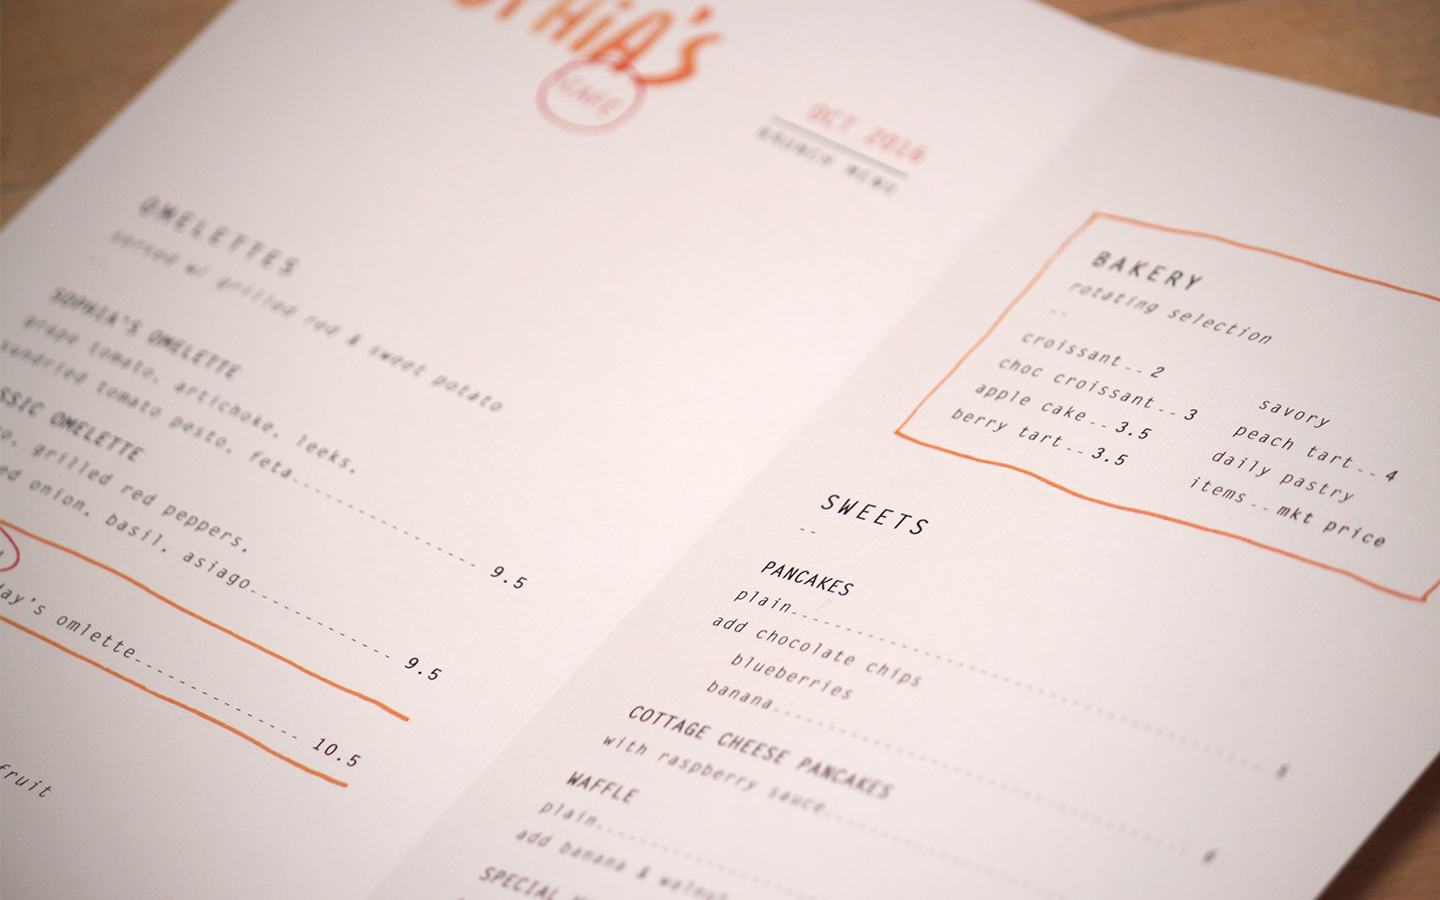 SOPHiA'S
CAFE
OCT 2016
BRUNCH MENU
OMELETTES
served w/ grilled red & sweet potato
--
SOPHIA'S OMELETTE
grape tomato, artichoke, leeks,
sundried tomato pesto, feta 9.5
OMELETTE
grilled red peppers,
onion, basil, asiago 9.5
omlette 10.5
fruit
BAKERY
rotating selection
--
croissant -- 2
choc croissant -- 3
apple cake -- 3.5
berry tart -- 3.5
savory
peach tart -- 4
daily pastry
items -- mkt price
SWEETS
--
PANCAKES
plain
add chocolate chips
blueberries
banana 8
COTTAGE CHEESE PANCAKES
with raspberry sauce
WAFFLE
plain
add banana & walnut
SPECIAL